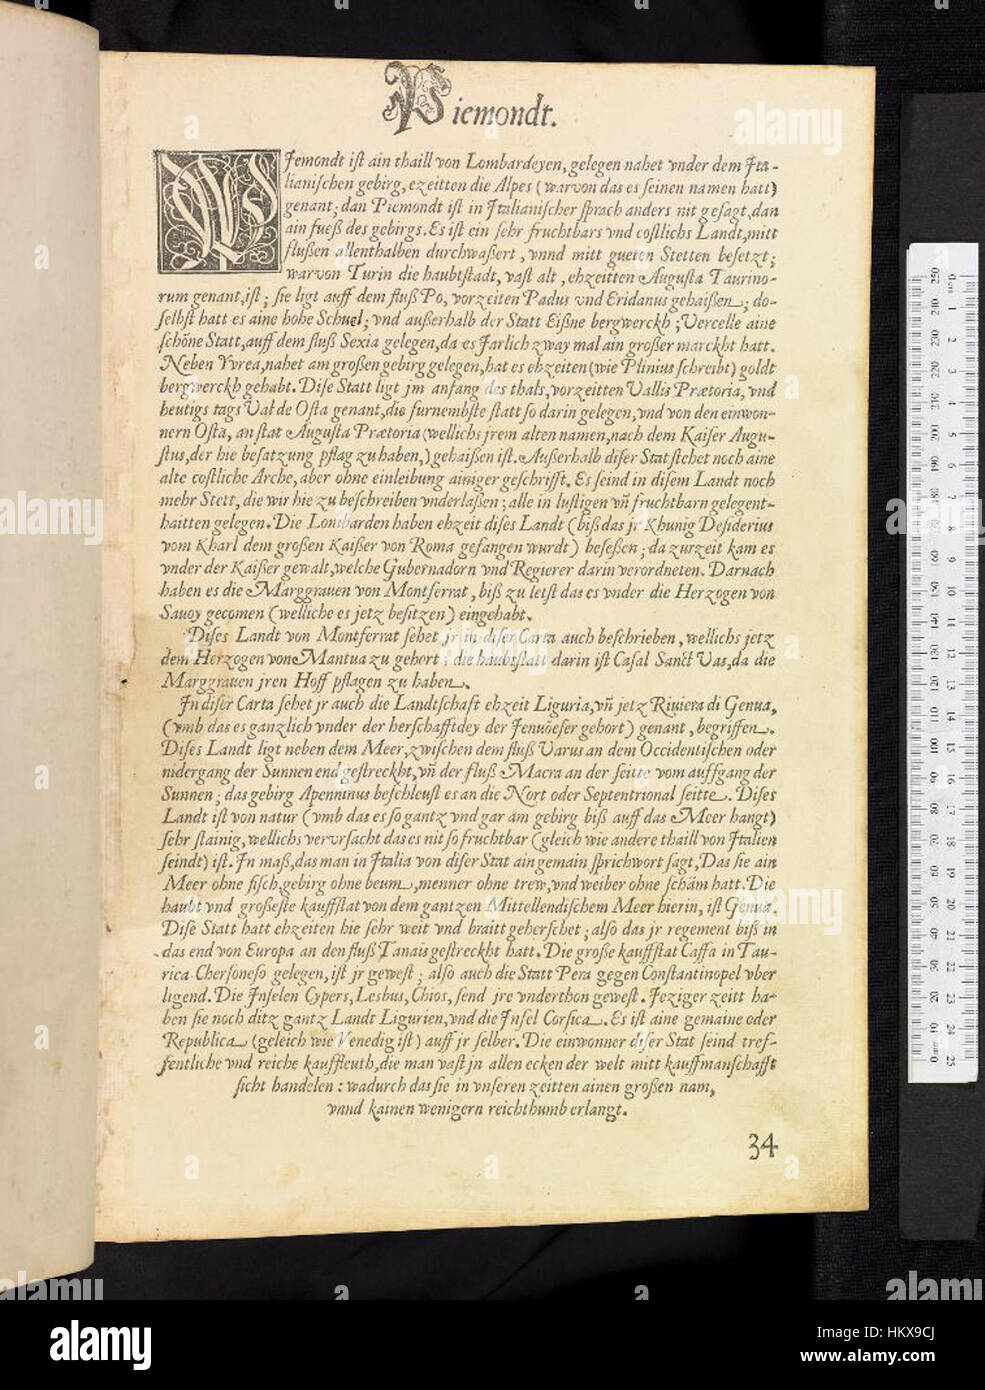 Piemondt.
PJemondt ist ain thaill von Lombardeyen, gelegen nahet vnder dem Jta-
lianischen gebirg, ezeitten die Alpes (warvon das es seinen namen hatt)
genant; dan Piemondt ist in Jtalianischer sprach anders nit gesagt, dan
ain fueß des gebirgs. Es ist ein sehr fruchtbars vnd costlichs Landt, mitt
flußen allenthalben durchwaßert, vnnd mitt gueten Stetten besetzt;
warvon Turin die haubtstadt, vast alt, ehzeitten Augusta Taurino-
rum genant, ist; sie ligt auff dem fluß Po, vorzeiten Padus vnd Eridanus gehaißen; do-
selbst hatt es aine hohe Schuel; vnd außerhalb der Statt Eißne bergwerckh; Vercelle aine
schöne Statt, auff dem fluß Sexia gelegen, da es Jarlich zway mal ain großer marckht hatt.
Neben Yvrea, nahet am großen gebirg gelegen, hat es ehzeiten (wie Plinius schreibt) goldt
bergwerckh gehabt. Dise Statt ligt jm anfang des thals, vorzeitten Vallis Prætoria, vnd
heutigs tags Val de Osta genant, die furnembste statt so darin gelegen, vnd von den einwon-
nern Osta, an stat Augusta Prætoria (wellichs jrem alten namen, nach dem Kaiser Augu-
stus, der hie besatzung pflag zu haben,) gehaißen ist. Außerhalb diser Stat stehet noch aine
alte costliche Arche, aber ohne einleibung ainiger geschrifft. Es seind in disem Landt noch
mehr Stett, die wir hie zu beschreiben vnderlaßen; alle in lustigen vn̄ fruchtbarn gelegent-
haitten gelegen. Die Lombarden haben ehzeit dises Landt (biß das jr Khunig Desiderius
vom Kharl dem großen Kaißer von Roma gefangen wurdt) beseßen; da zurzeit kam es
vnder der Kaißer gewalt, welche Gubernadorn vnd Regierer darin verordneten. Darnach
haben es die Marggrauen von Montferrat, biß zu letst das es vnder die Herzogen von
Sauoy gecomen (welliche es jetz besitzen) eingehabt.
Dises Landt von Montferrat sehet jr in diser Carta auch beschrieben, wellichs jetz
dem Herzogen von Mantua zu gehort; die haubtstatt darin ist Casal Sanct Vas, da die
Marggrauen jren Hoff pflagen zu haben.
Jn diser Carta sehet jr auch die Landtschaft ehzeit Liguria, vn̄ jetz Riuiera di Genua,
(vmb das es ganzlich vnder der herschafftdey der Jenuöeser gehort) genant, begriffen.
Dises Landt ligt neben dem Meer, zwischen dem fluß Varus an dem Occidentischen oder
nidergang der Sunnen end gestreckht, vn̄ der fluß Macra an der seitte vom auffgang der
Sunnen; das gebirg Apenninus beschleust es an die Nort oder Septentrional seitte. Dises
Landt ist von natur (vmb das es so gantz vnd gar am gebirg biß auff das Meer hangt)
sehr stainig, wellichs vervrsacht das es nit so fruchtbar (gleich wie andere thaill von Jtalien
seindt) ist. Jn maß, das man in Jtalia von diser Stat ain gemain sprichwort sagt, Das sie ain
Meer ohne fisch, gebirg ohne beum, menner ohne trew, vnd weiber ohne schäm hatt. Die
haubt vnd großeste kauffstat von dem gantzen Mittellendischem Meer hierin, ist Genua.
Dise Statt hatt ehzeiten hie sehr weit vnd braitt geherschet; also das jr regement biß in
das end von Europa an den fluß Tanais gestreckht hatt. Die große kauffstat Caffa in Tau-
rica Chersoneso gelegen, ist jr gewest; also auch die Statt Pera gegen Constantinopel vber
ligend. Die Jnselen Cypers, Lesbus, Chios, send jre vnderthon gewest. Jeziger zeitt ha-
ben sie noch ditz gantz Landt Ligurien, vnd die Jnsel Corsica. Es ist aine gemaine oder
Republica (geleich wie Venedig ist) auff jr selber. Die einwonner diser Stat seind tref-
fentliche vnd reiche kauffleuth, die man vast jn allen ecken der welt mitt kauffmanschafft
sicht handelen: wadurch das sie in vnseren zeitten ainen großen nam,
vnnd kainen wenigern reichthumb erlangt.
34
alamy
Image ID: HKX9CJ
www.alamy.com